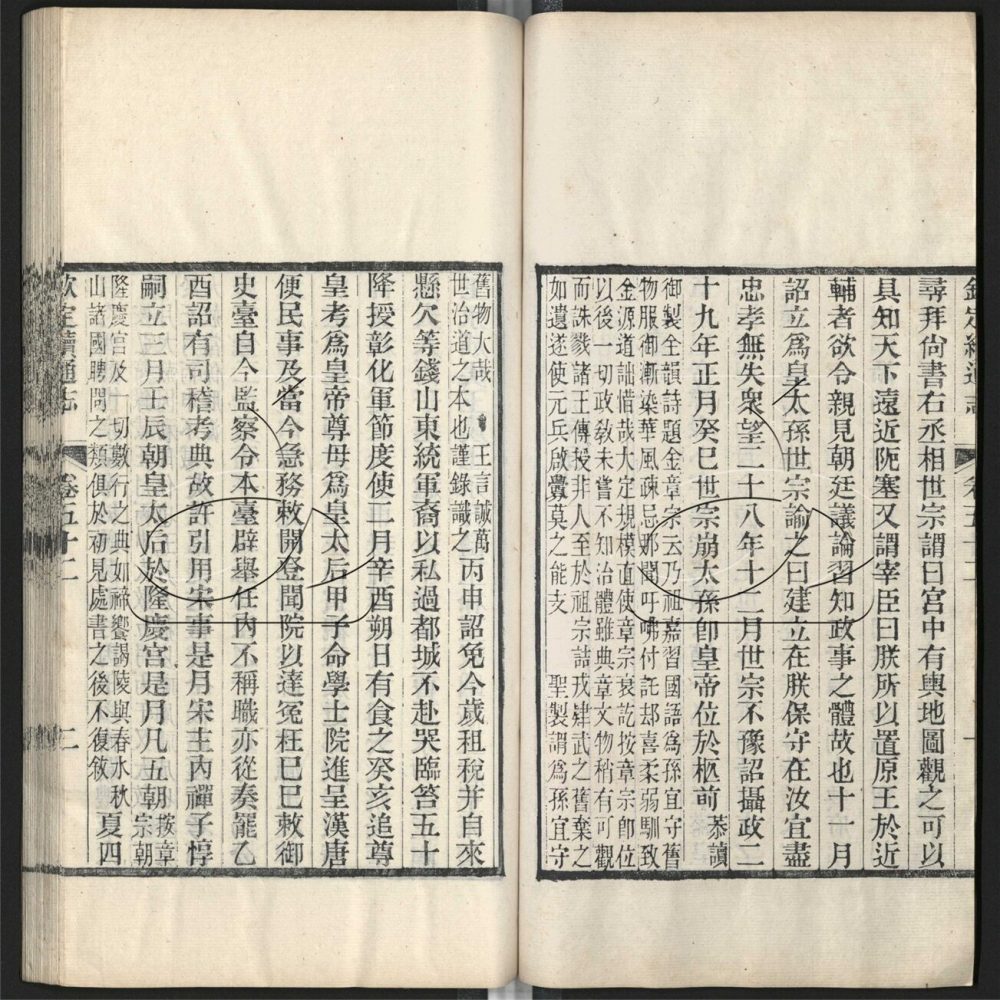 欽定續通志
卷五十二
尋拜尚書右丞相世宗謂曰宮中有輿地圖觀之可以
具知天下遠近阨塞又謂宰臣曰朕所以置原王於近
輔者欲令親見朝廷議論習知政事之體故也十一月
詔立爲皇太孫世宗諭之曰建立在朕保守在汝宜盡
忠孝無失衆望二十八年十二月世宗不豫詔攝政二
十九年正月癸巳世宗崩太孫卽皇帝位於柩前恭讀
御製全韻詩題金章宗云乃祖嘉習國語爲孫宜守舊
物服御漸染華風疎忌那聞吁咈付託却喜柔弱馴致
金源道詘惜哉大定規模直使章宗衰訖按章宗卽位
以後一切政敎未嘗不知治體雖典章文物稍有可觀
而誅戮諸王傳授非人至於祖宗詰戎肄武之舊棄之
如遺遂使元兵啟釁莫之能支 聖製謂爲孫宜守
舊物大哉 王言誠萬
世治道之本也謹錄識之丙申詔免今歲租稅并自來
懸欠等錢山東統軍裔以私過都城不赴哭臨笞五十
降授彰化軍節度使二月辛酉朔日有食之癸亥追尊
皇考爲皇帝尊母爲皇太后甲子命學士院進呈漢唐
便民事及當今急務敕開登聞院以達冤枉己巳敕御
史臺自今監察令本臺辟舉任內不稱職亦從奏罷乙
酉詔有司稽考典故許引用宋事是月宋主內禪子惇
嗣立三月壬辰朝皇太后於隆慶宮是月凡五朝按章宗朝
隆慶宮及一切數行之典如禘饗謁陵與春水秋
山諸國聘問之類俱於初見處書之後不復敘夏四
欽定續通志
卷五十二
二